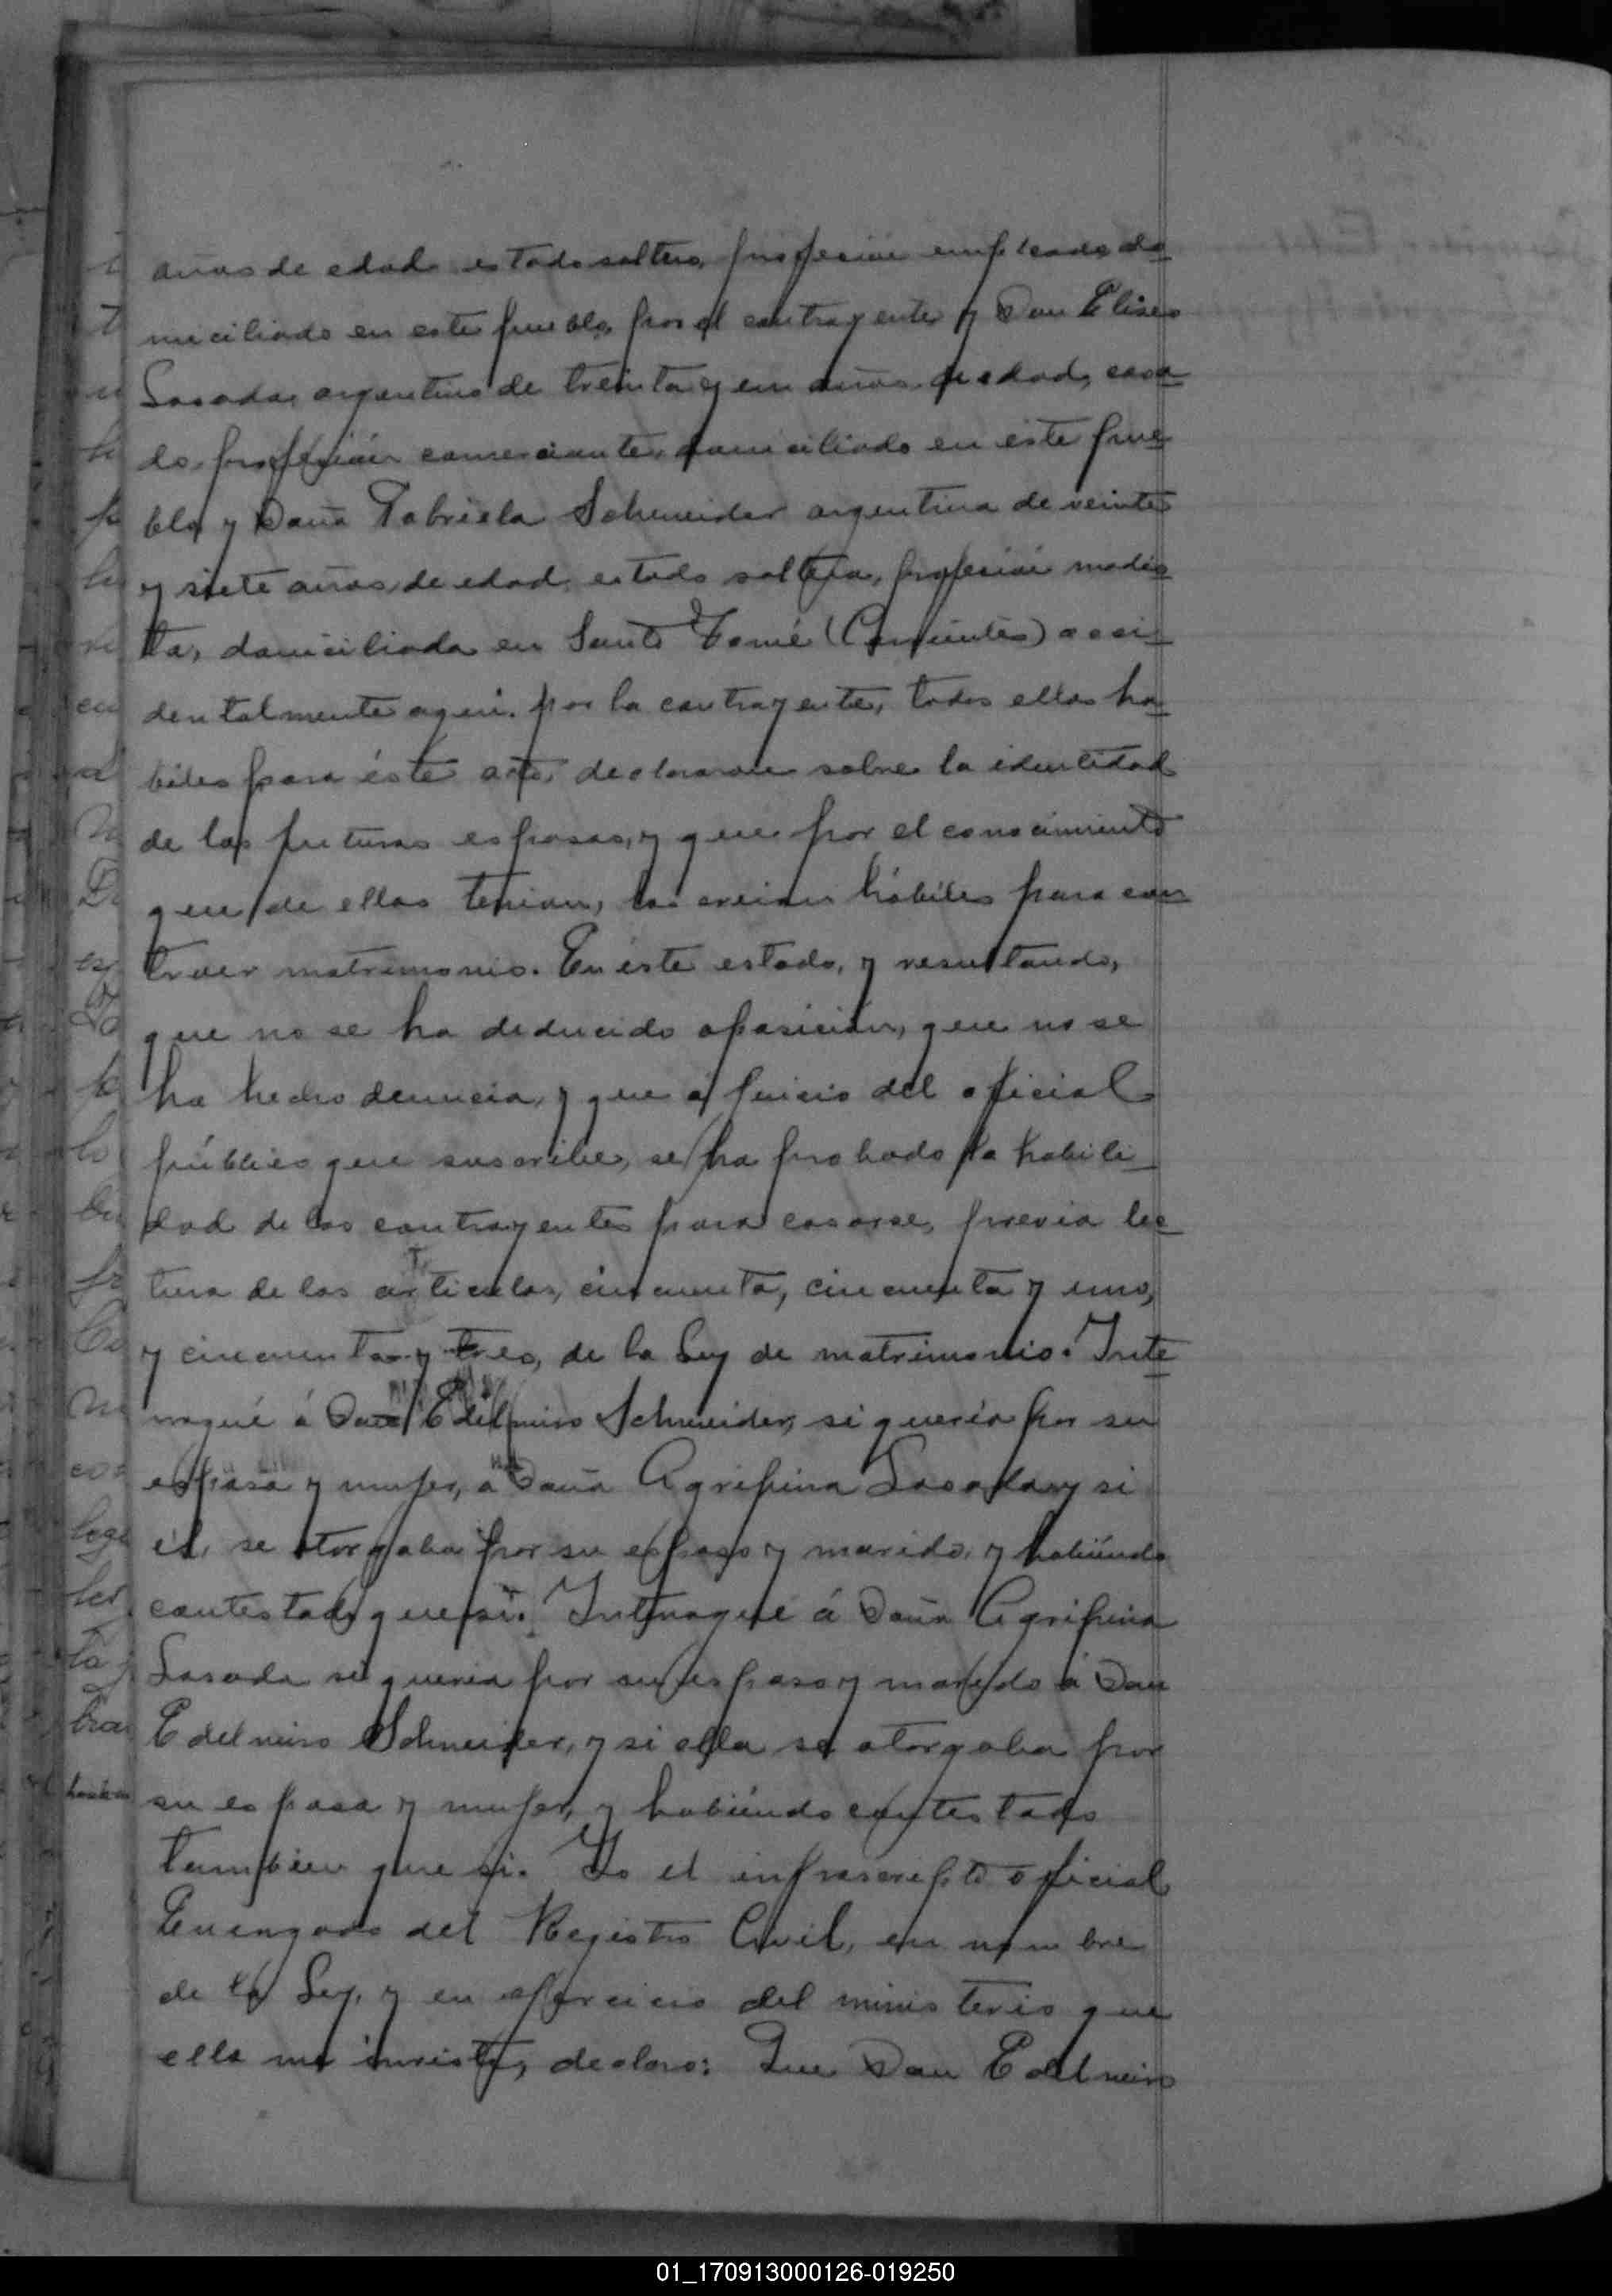 años de edad, estado soltero, profesión empleado do_
miciliado en este pueblo, por el contrayente y Don Eliseo
Losada, argentino de treinta y un años de edad, casa_
do, profesión comerciante, domiciliado en este pue_
blo, y Doña Gabriela Schneider argentina de veinte
y siete años, de edad, estado soltera, profesión modis_
ta, domiciliada en Santo Tomé (Corrientes) acci_
dentalmente aqui. por la contrayente, todos ellos ha_
biles para éste acto, declararon sobre la identidad
de los futuros esposos, y que por el conocimiento
que de ellos tenian, los creian hábiles para con_
traer matrimonio. En éste estado, y resultando,
que no se ha deducido oposición, que no se
ha hecho denuncia, y que á juicio del oficial
público que suscribe, se ha probado la habili_
dad de los contrayentes para casarse, previa lec_
tura de los articulos, cincuenta, cincuenta y uno,
y cincuenta y tres, de la Ley de matrimonio. Inte_
rrogué á Don Edelmiro Schneider, si queria por su
esposa y mujer, a Doña Agripina Losada, y si
él, se otorgaba por su esposo y marido, y habiendo
contestado que si. Interrogué á Doña Agripina
Losada si queria por su esposo y marido á Don
Edelmiro Schneider, y si ella se otorgaba por
su esposa y mujer, y habiendo contestado
tambien que si. Yo el infrascripto oficial
Encargado del Registro Civil, en nombre
de la Ley, y en ejercicio del ministerio que
ella me inviste, declaro: Que Don Edelmiro
01_170913000126-019250